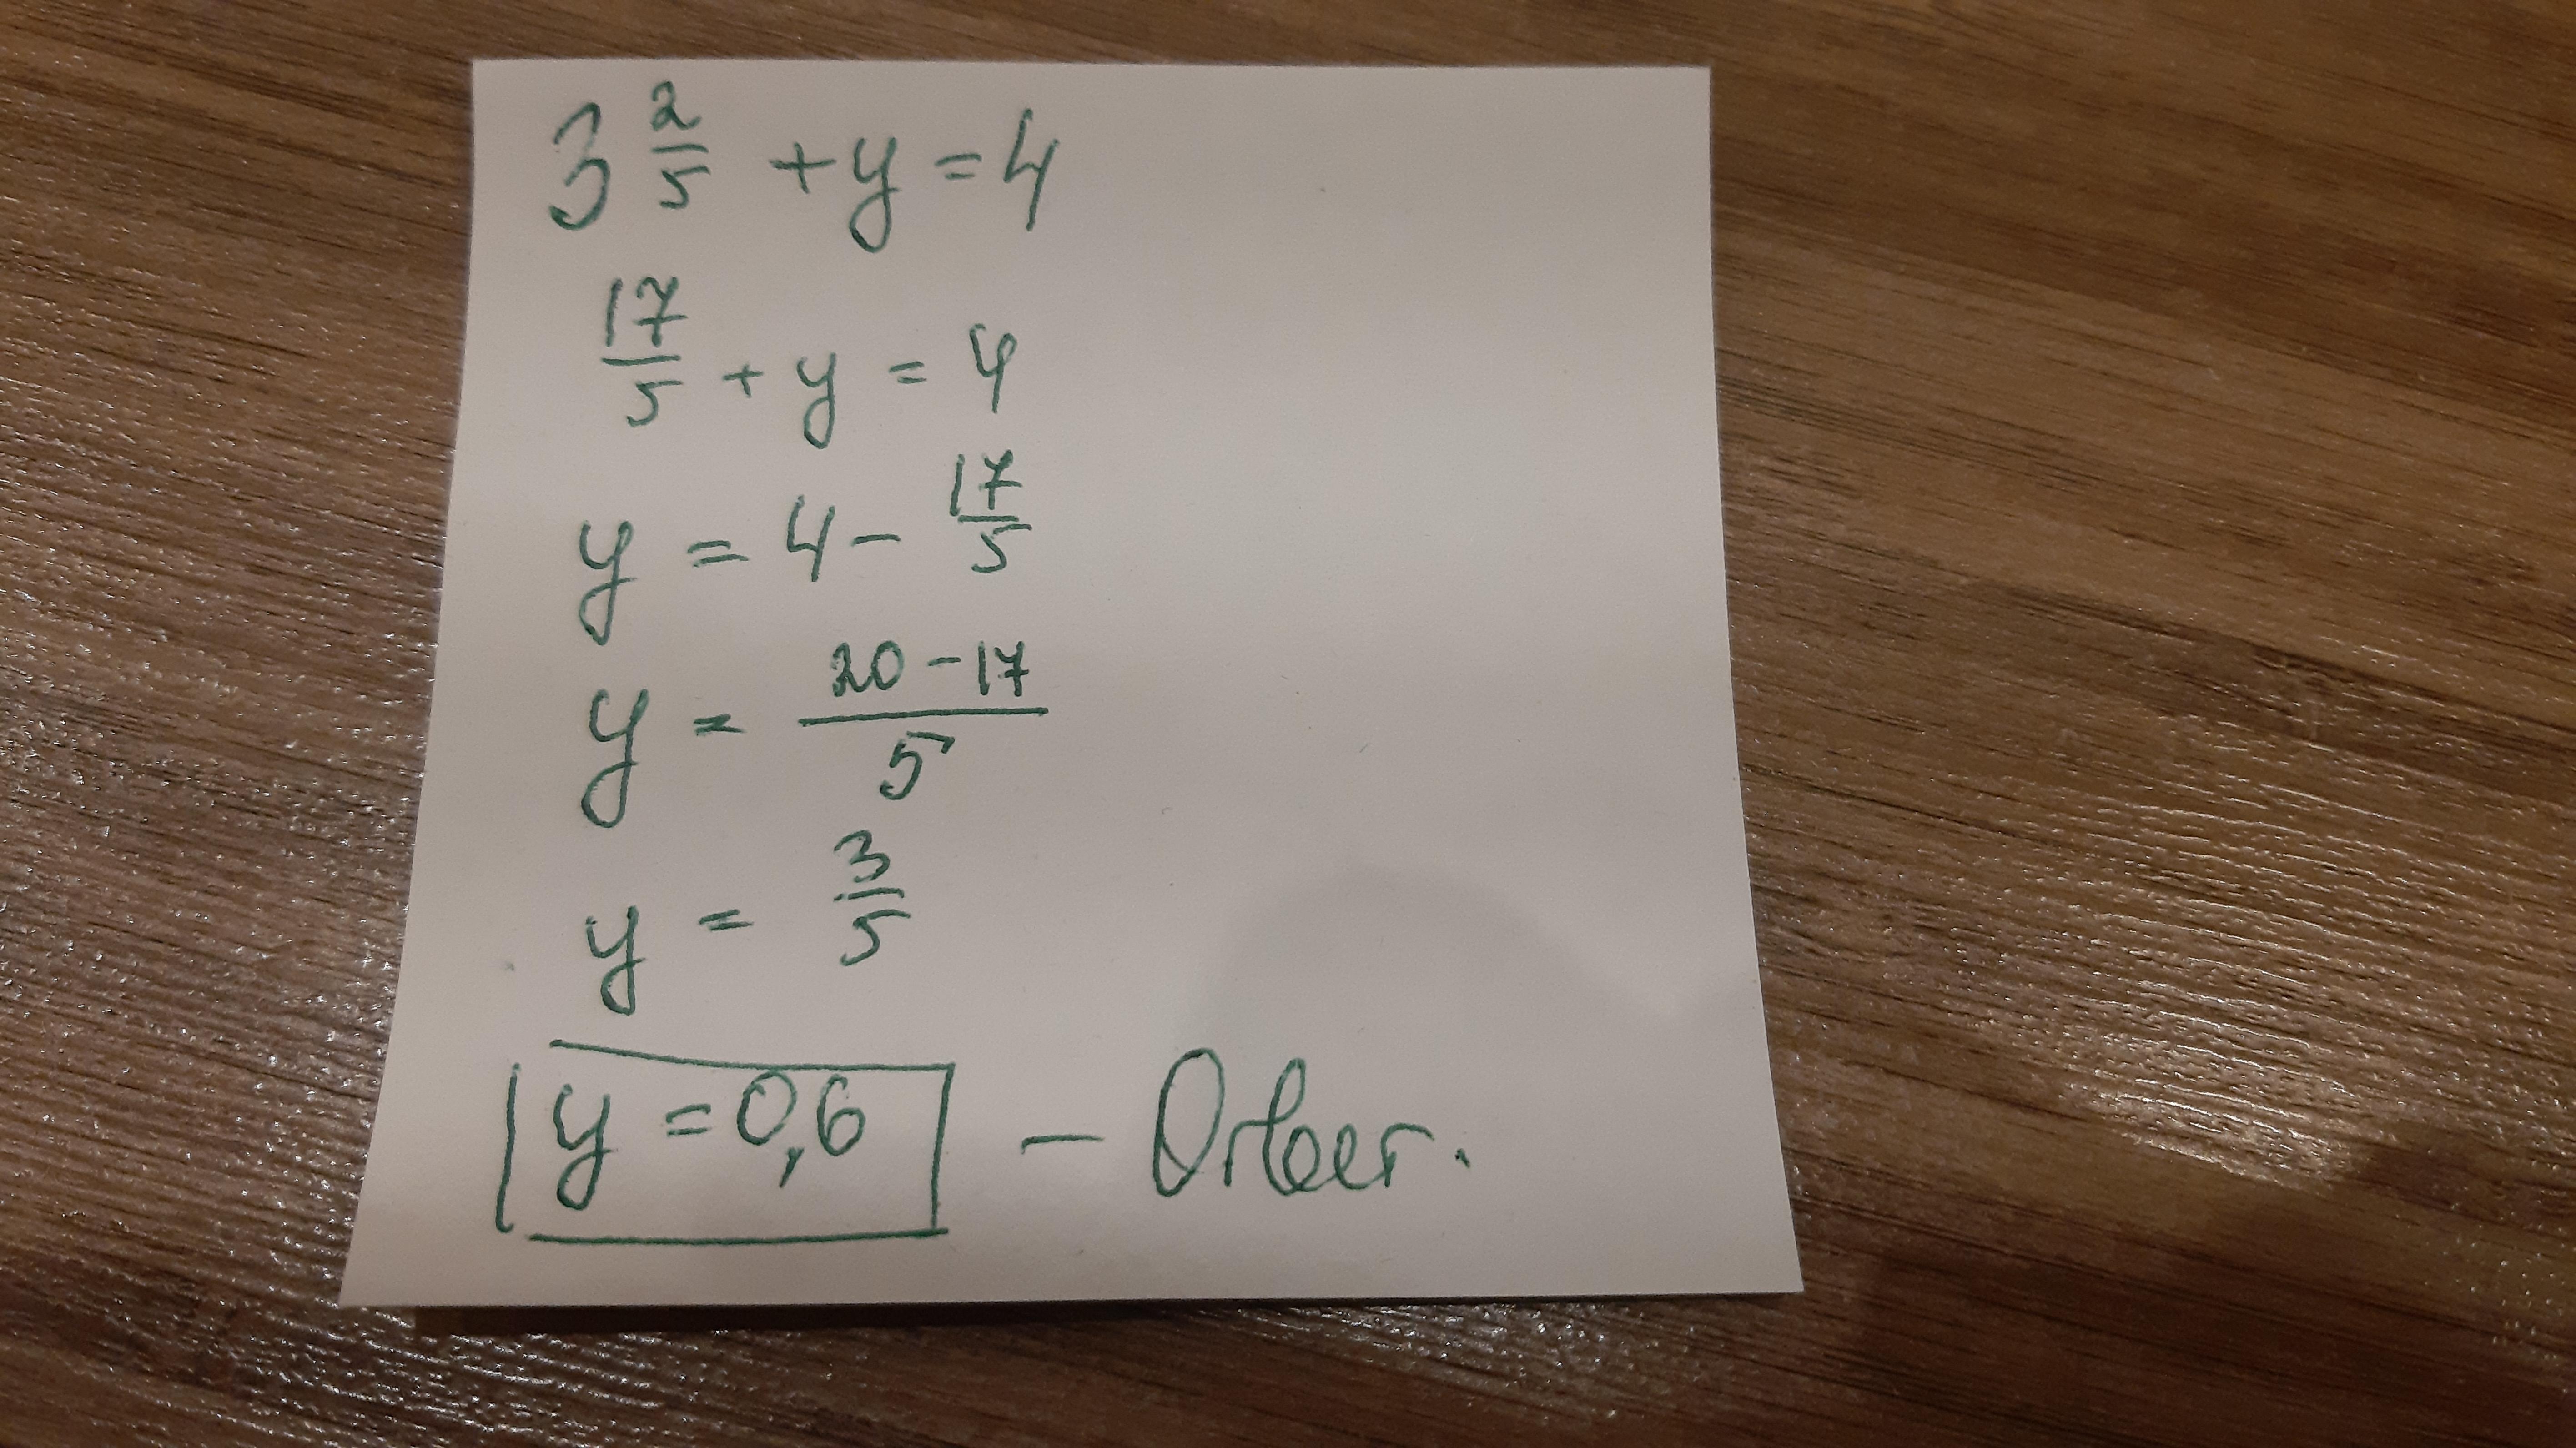 3 2/5 + y = 4
17/5 + y = 4
y = 4 - 17/5
y = 20 - 17 / 5
y = 3/5
y = 0,6 - Ответ.